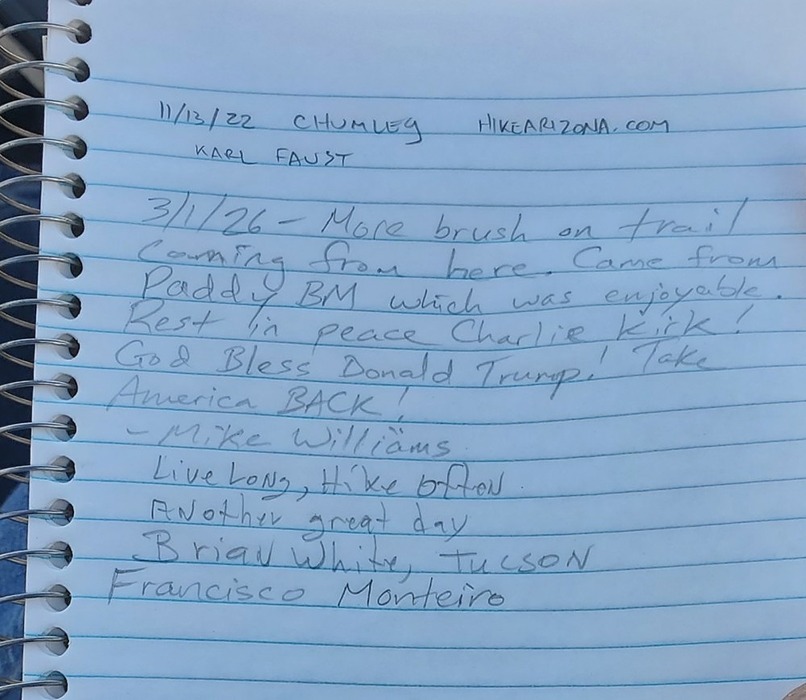 11/13/22 CHUMLEY HIKEARIZONA.COM
KARL FAUST
3/1/26 - More brush on trail
Comming from here. Came from
Paddy BM which was enjoyable.
Rest in peace Charlie Kirk!
God Bless Donald Trump! Take
America BACK!
- Mike Williams
Live Long, Hike often
Another great day
Brian White, Tucson
Francisco Monteiro